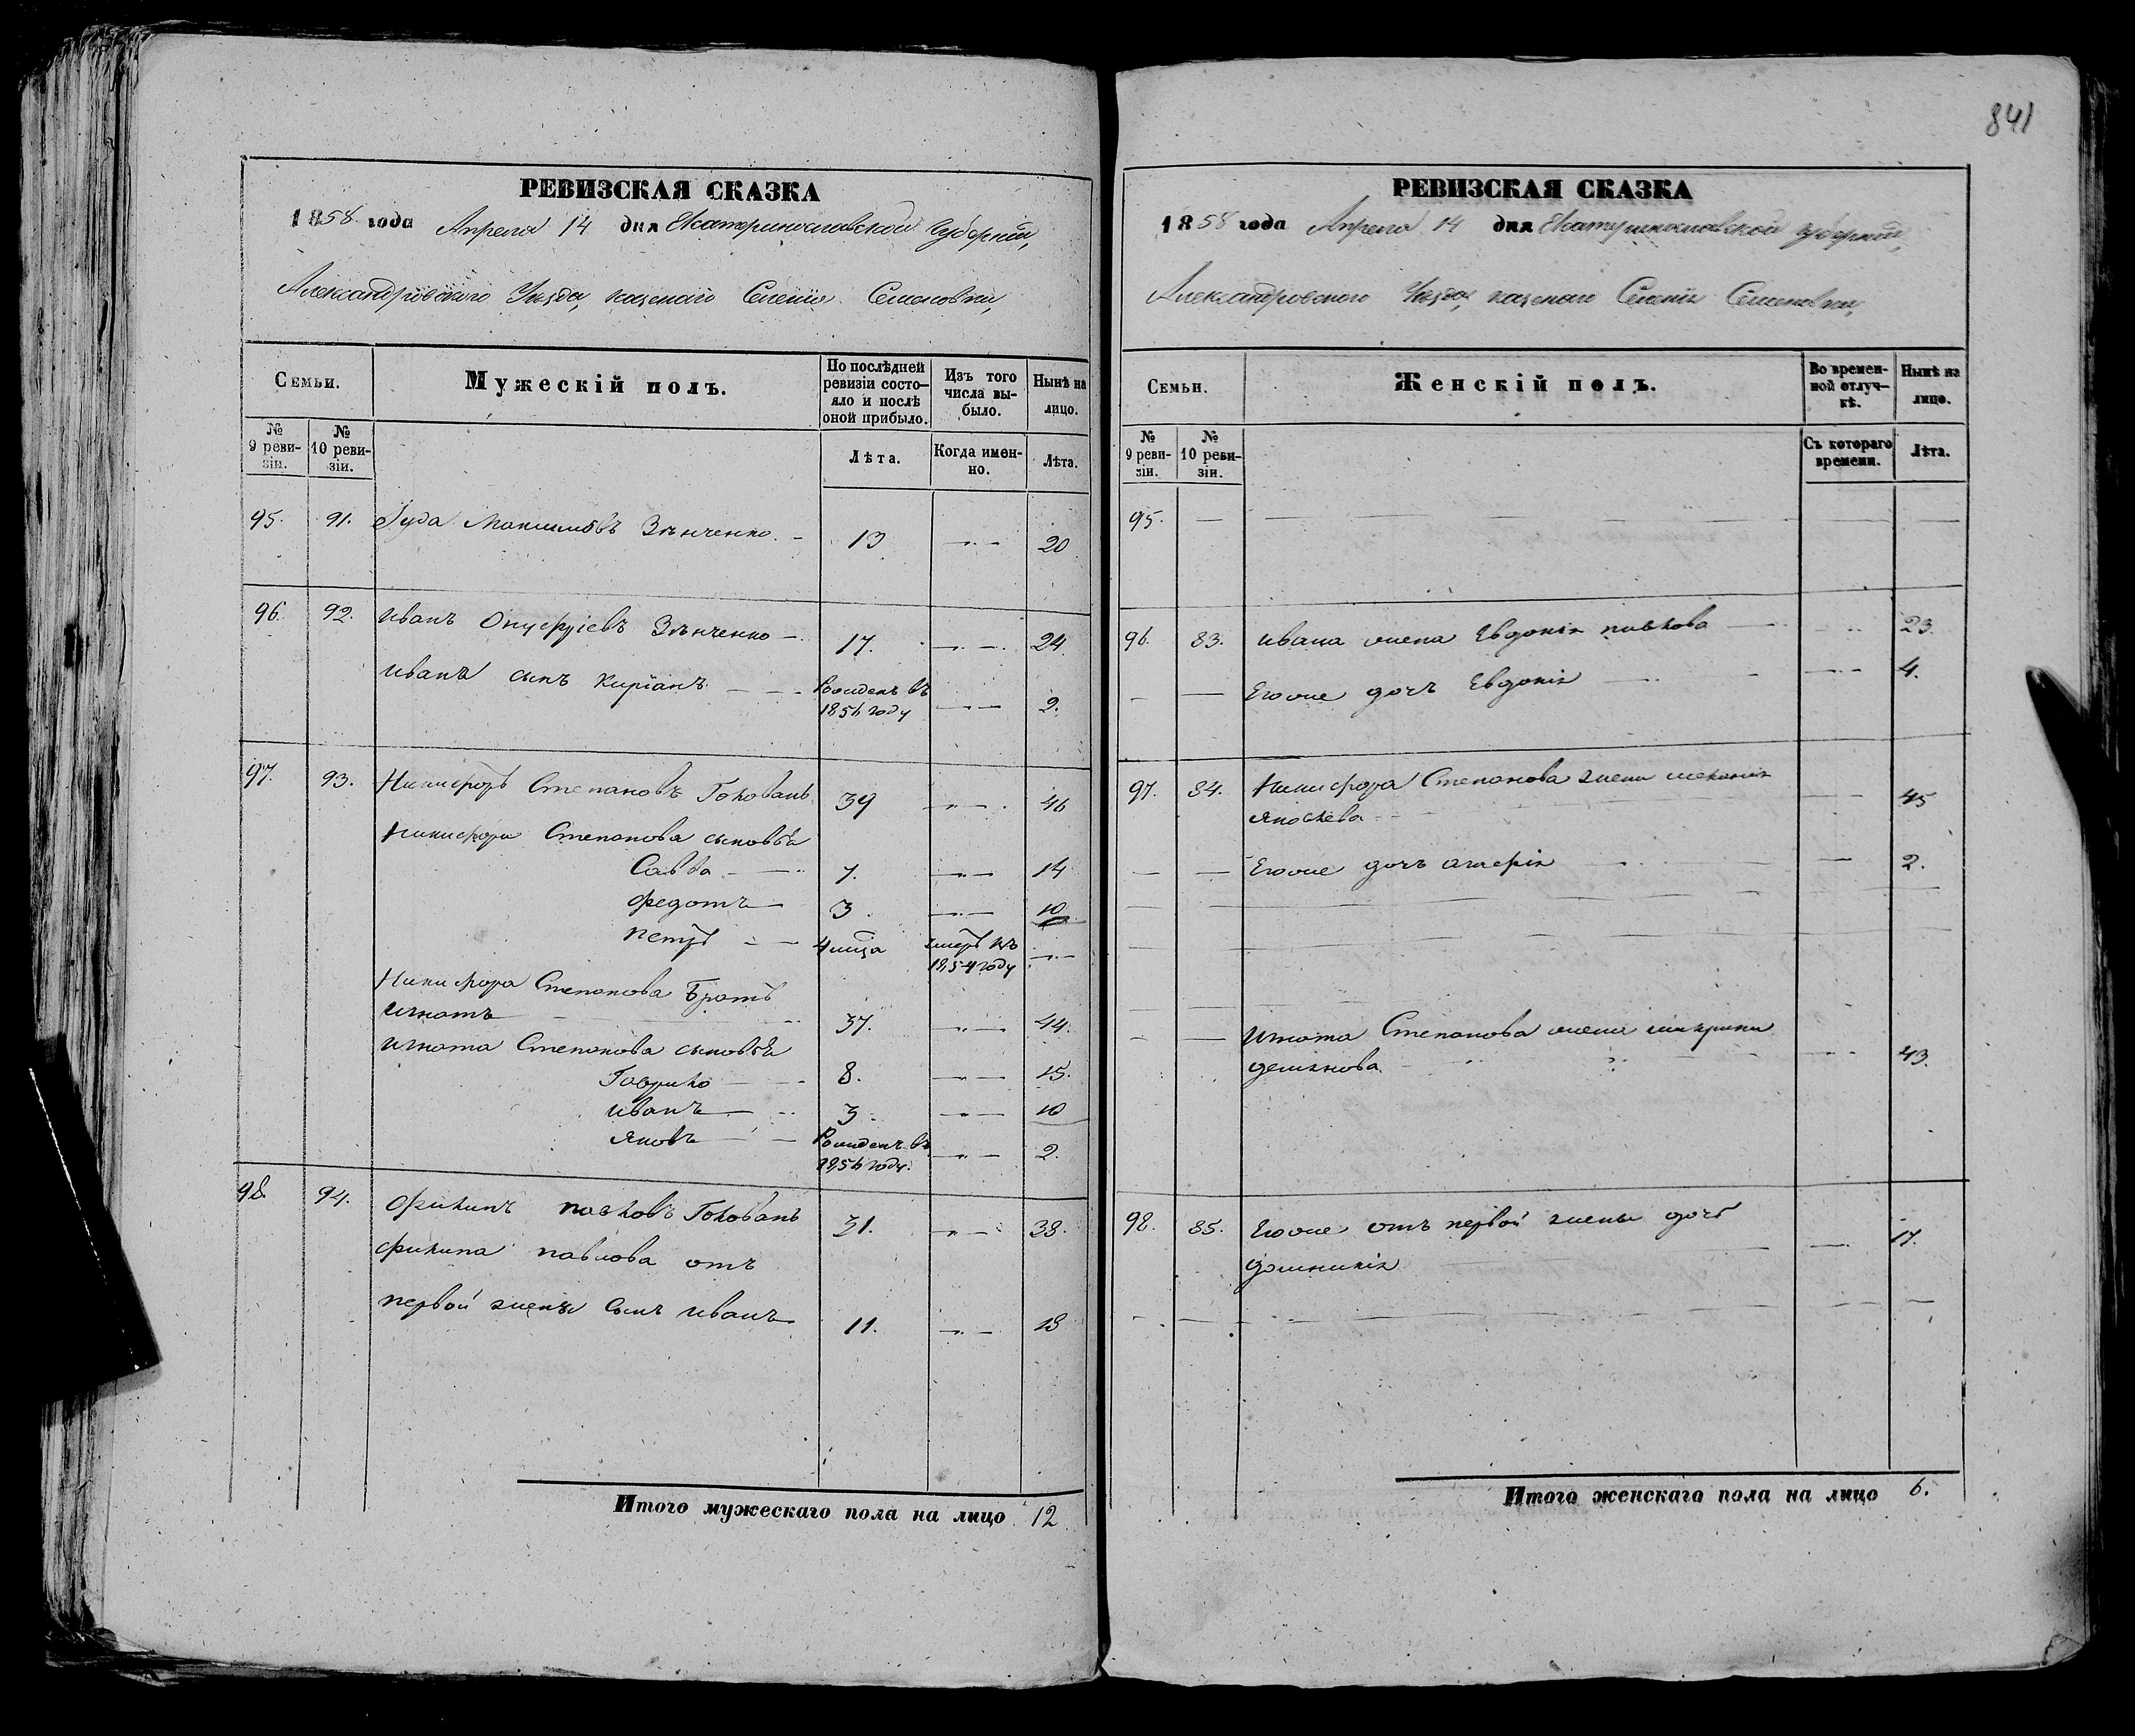 841
РЕВИЗСКАЯ СКАЗКА
1858 года Апреля 14 дня Екатеринославской Губерніи,
Александровского Уезда, казенаго Селенія Семеновки,
Семьи.
Мужескій полъ.
По послѣдней ревизіи состо-
яло и послѣ оной прибыло.
Изъ того числа вы-
было.
Нынѣ на лицо.
№ 9 реви-
зіи.
№ 10 реви-
зіи.
Лѣта.
Когда имен-
но.
Лѣта.
95. 91. Іуда Максимовъ Зѣнченко 13 20
96. 92. Иванъ Онуфріевъ Зѣнченко 17. 24
Ивана сынъ Киріанъ Рожденъ въ 1856 году 2.
97. 93. Никифоръ Степановъ Головань 39 46
Никифора Степанова сыновья
Савва 7. 14
Федотъ 3. 10
Петръ 4 мца умеръ въ 1854 году
Никифора Степанова братъ
Игнатъ 37. 44.
Игната Степанова сыновья
Гаврило 8. 15.
Иванъ 3. 10
Яковъ Рожденъ въ 1856 году. 2.
98. 94. Филипъ Павловъ Головань 31. 38.
Филипа Павлова отъ
первой жены сынъ Иванъ 11. 18
Итого мужескаго пола на лицо 12
РЕВИЗСКАЯ СКАЗКА
1858 года Апреля 14 дня Екатеринославской Губерніи,
Александровского Уезда, казенаго Селенія Семеновки,
Семьи.
Женскій полъ.
Во времен-
ной отлуч-
кѣ.
Нынѣ на лицо.
№ 9 реви-
зіи.
№ 10 реви-
зіи.
Съ котораго времени.
Лѣта.
95.
96. 83. Ивана жена Евдокія Павлова 23.
Егоже дочь Евдокія 4.
97. 84. Никифора Степанова жена Меланія
Яковлева 45
Егоже дочь Агафія 2.
Игната Степанова жена
Демянова 43.
98. 85. Егоже отъ первой жены дочь
Домникія 17.
Итого женскаго пола на лицо 6.